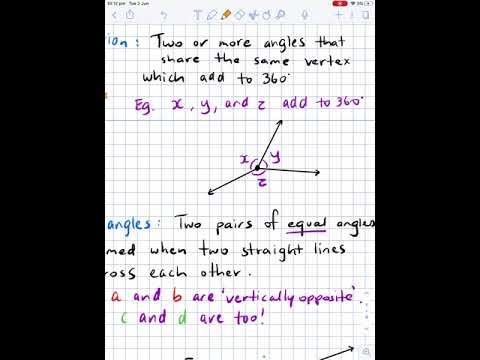 Tue 2 Jun
ion: Two or more angles that
share the same vertex
which add to 360°
Eg. x, y, and z add to 360°
x
y
z
angles: Two pairs of equal angles
med when two straight lines
ross each other.
a and b are 'vertically opposite'.
c and d are too!